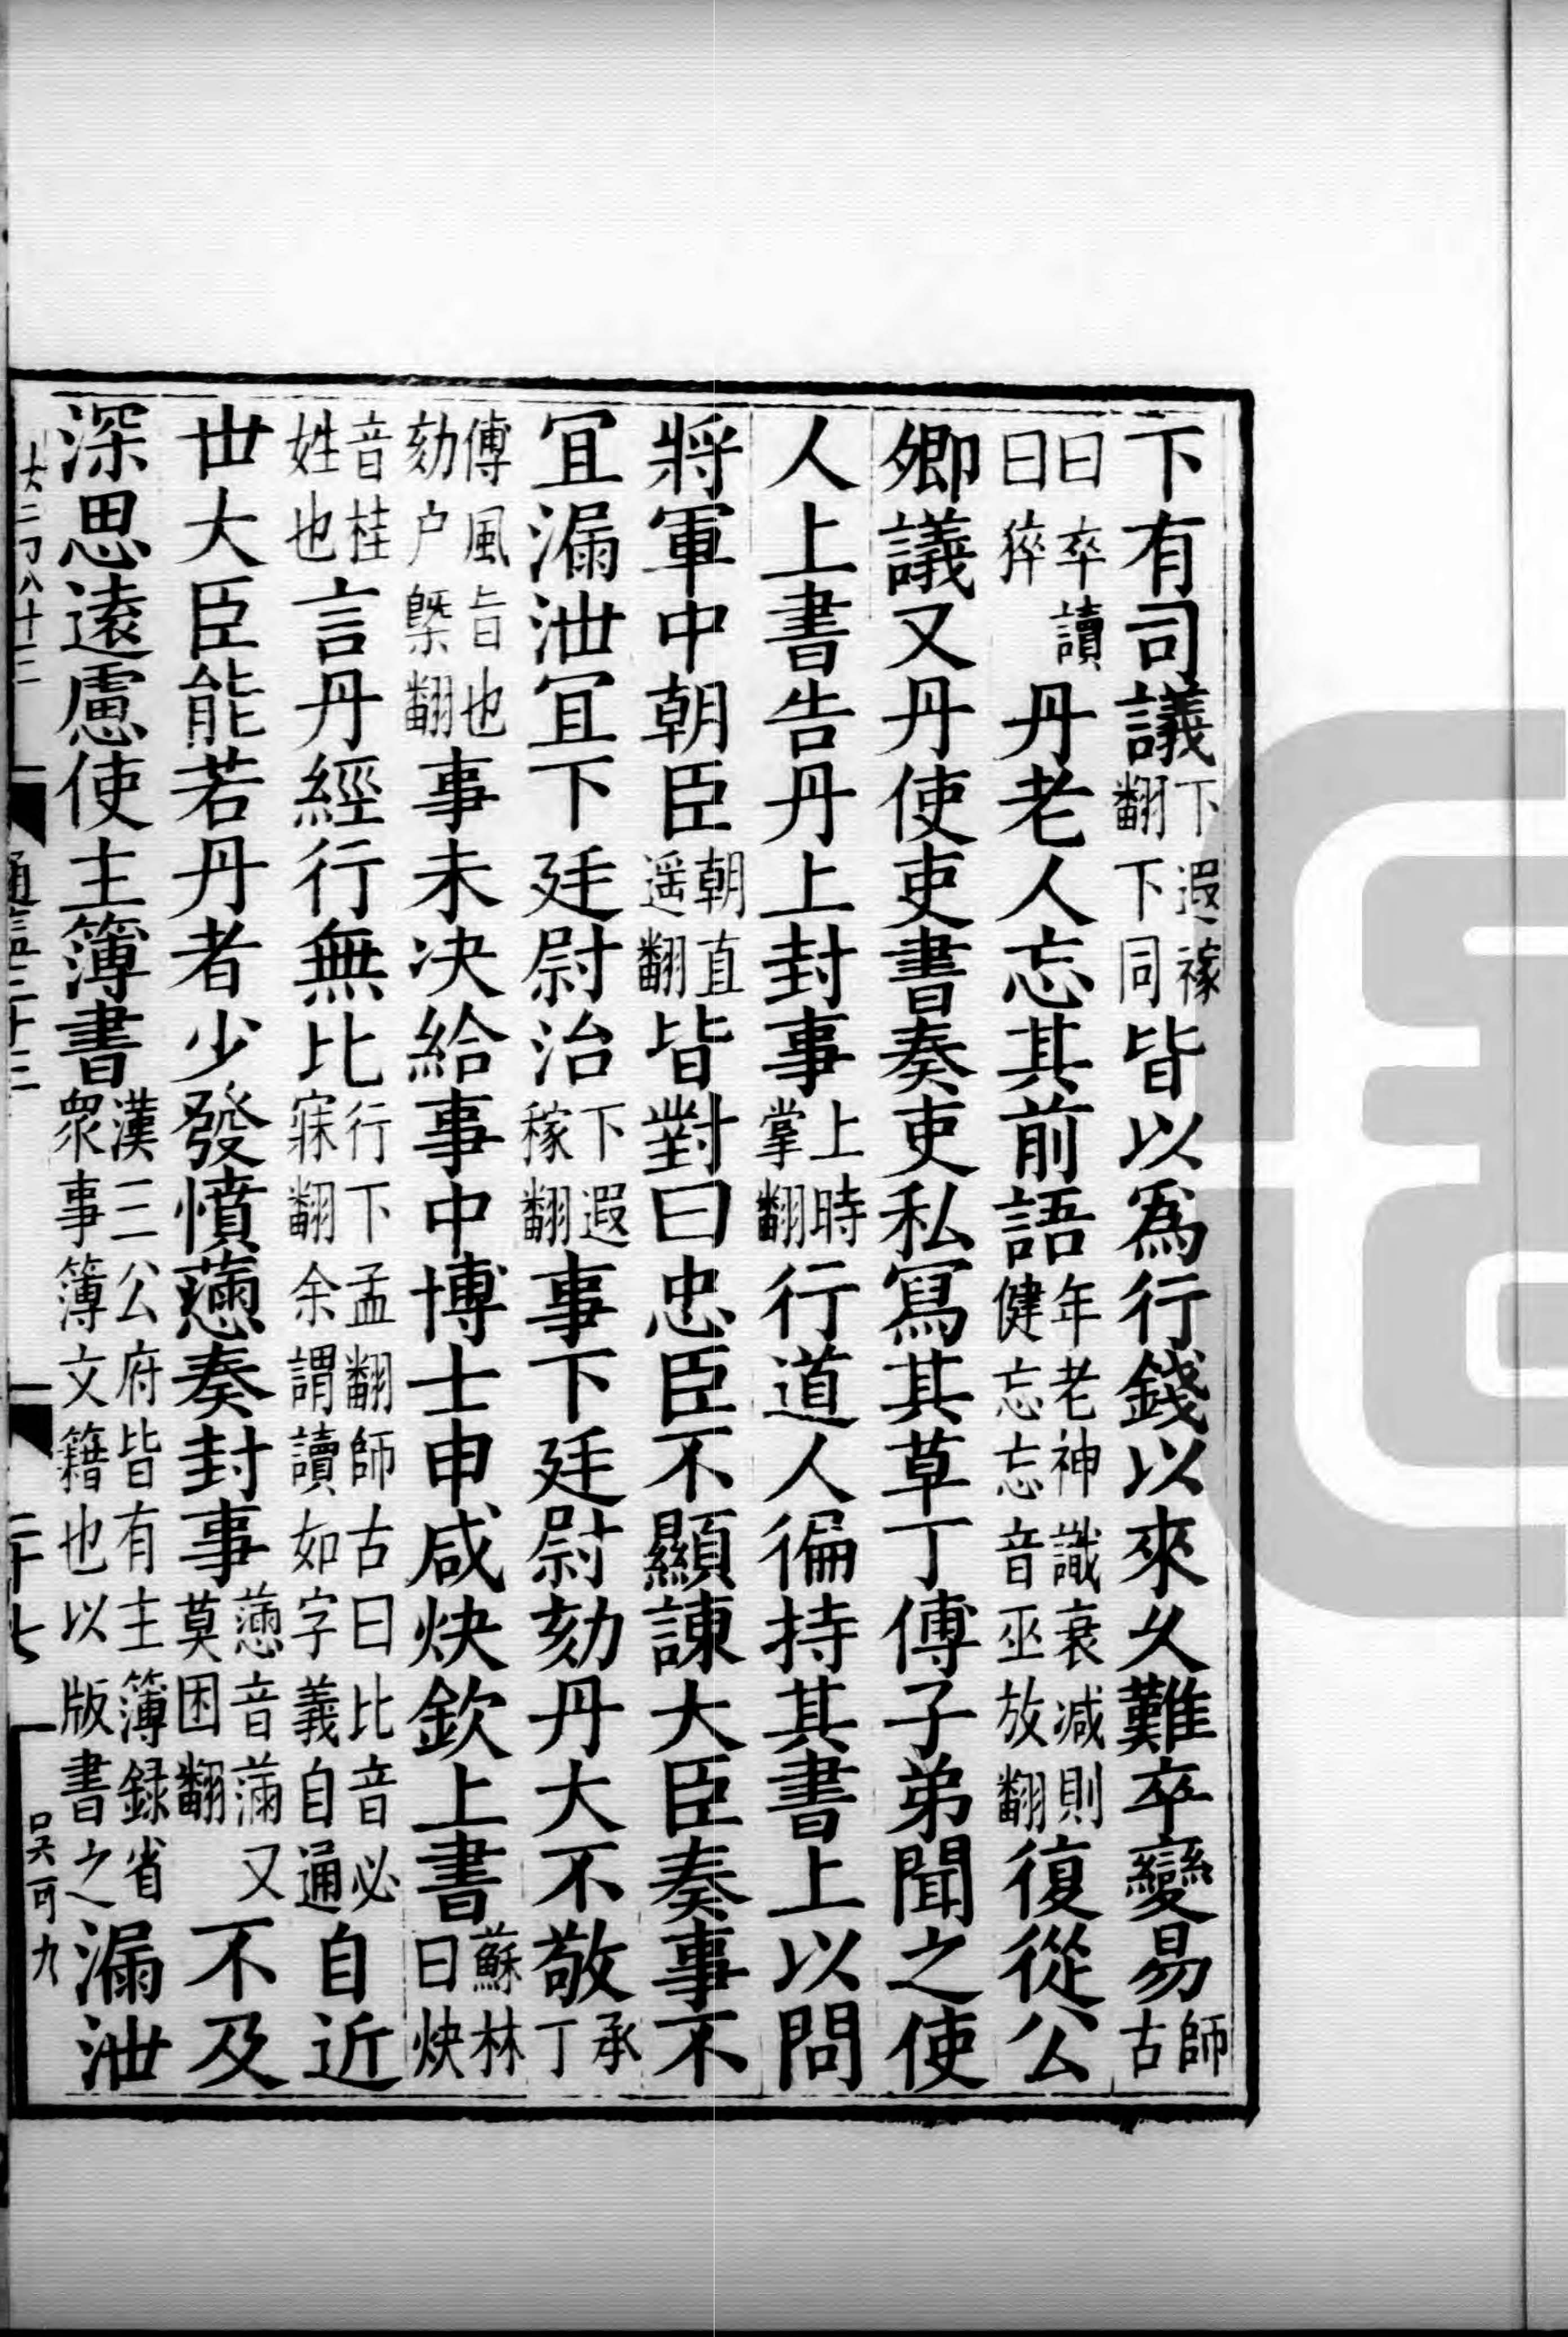 下有司議下遐稼翻下同皆以爲行錢以來乆難卒變易師古
曰卒讀曰猝丹老人忘其前語年老神識衰减則健忘忘音巫放翻復從公
卿議又丹使吏書奏吏私寫其草丁傅子弟聞之使
人上書告丹上封事上時掌翻行道人徧持其書上以問
將軍中朝臣朝直遥翻皆對曰忠臣不顯諫大臣奏事不
宜漏泄宜下廷尉治下遐稼翻事下廷尉劾丹大不敬承丁
傅風旨也劾户槩翻事未決給事中博士申咸炔欽上書蘇林曰炔
音桂姓也言丹經行無比行下孟翻師古曰比音必寐翻余謂讀如字義自通自近
世大臣能若丹者少發憤懣奏封事懣音滿又莫困翻不及
深思遠慮使主簿書漢三公府皆有主簿録省衆事簿文籍也以版書之漏泄
通鑑三十三
二十七